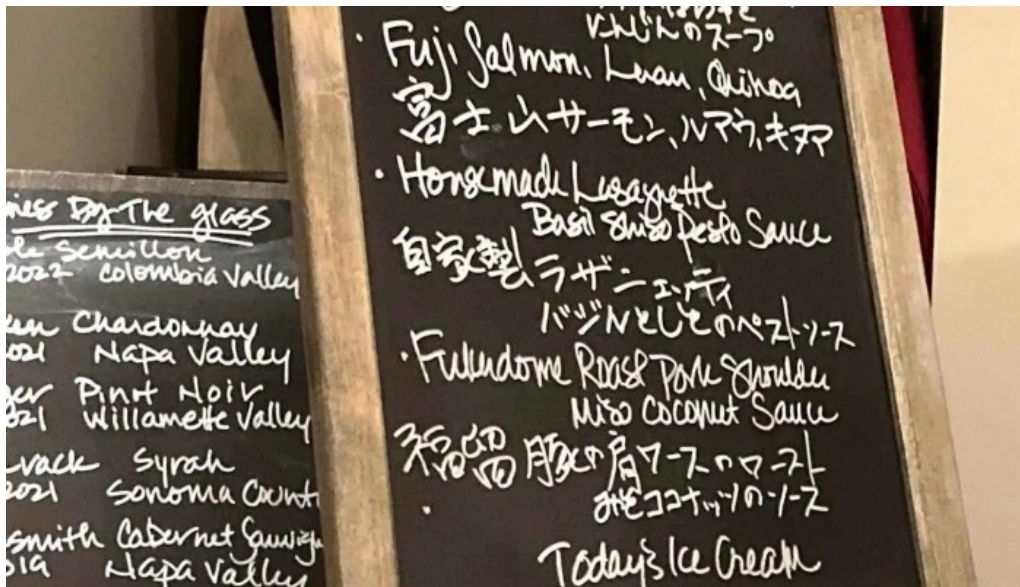 By The glass
Semillon
2022 Colombia Valley
Chardonnay
Napa Valley
Pinot Noir
Willamette Valley
Syrah
Sonoma
Cabernet
Napa Valley
にんじんのスープ
· Fuji Salmon, Luau, Quinoa
富士山サーモン、ルアウ、キヌア
· Homemade Lasagnette
Basil Shiso Pesto Sauce
自家製ラザニェッティ
バジルとしそのペストソース
· Fukudome Roast Pork Shoulder
Miso Coconut Sauce
福留豚の肩ロースのロースト
みそココナッツのソース
·
Today's Ice Cream